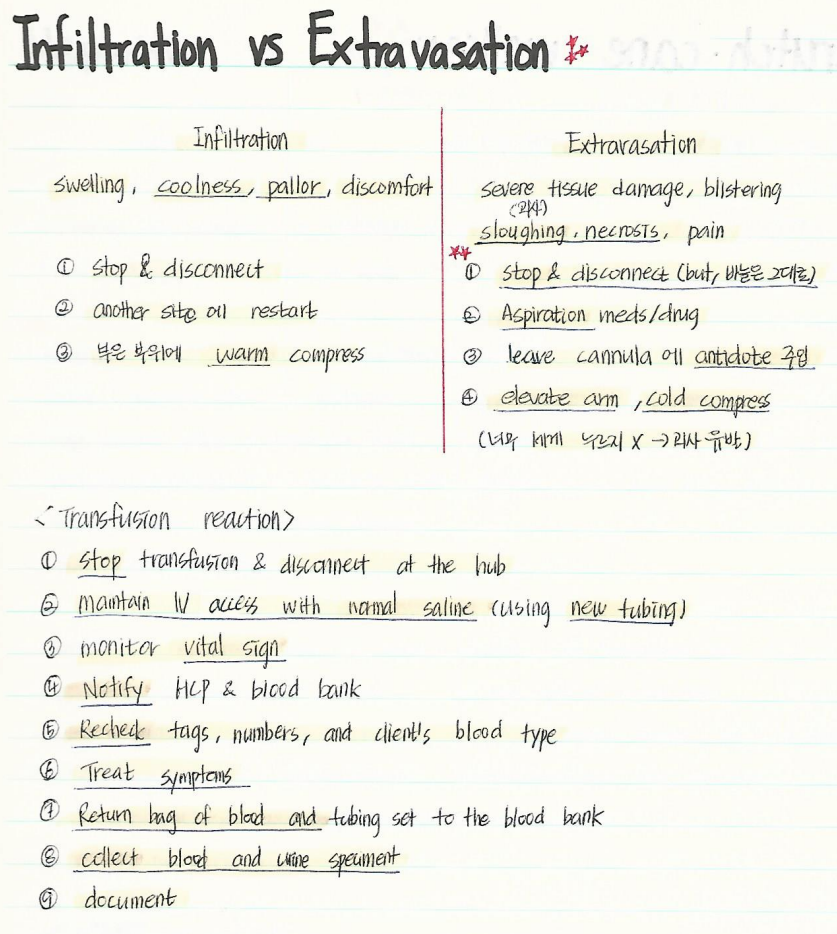 Infiltration vs Extravasation
Infiltration
swelling, coolness, pallor, discomfort
① stop & disconnect
② another site에 restart
③ 부은 부위에 warm compress
Extravasation
severe tissue damage, blistering
(괴사)
sloughing, necrosis, pain
① stop & disconnect (but, 바늘은 그대로)
② Aspiration meds/drug
③ leave cannula에 antidote 주입
④ elevate arm, cold compress
(너무 세게 누르지 X → 괴사 유발)
<Transfusion reaction>
① stop transfusion & disconnect at the hub
② maintain IV access with normal saline (using new tubing)
③ monitor vital sign
④ Notify HCP & blood bank
⑤ Recheck tags, numbers, and client's blood type
⑥ Treat symptoms
⑦ Return bag of blood and tubing set to the blood bank
⑧ collect blood and urine speciment
⑨ document